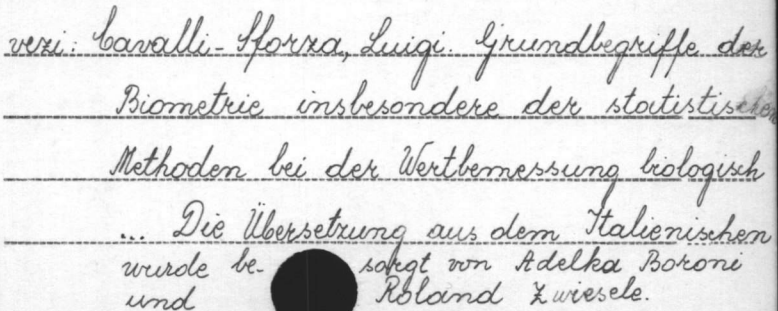 vezi: Cavalli-Sforza, Luigi. Grundbegriffe der
Biometrie insbesondere der statistischen
Methoden bei der Wertbemessung biologisch
... Die Übersetzung aus dem Italienischen
wurde be- sorgt von Adelka Boroni
und Roland Zwiesele.